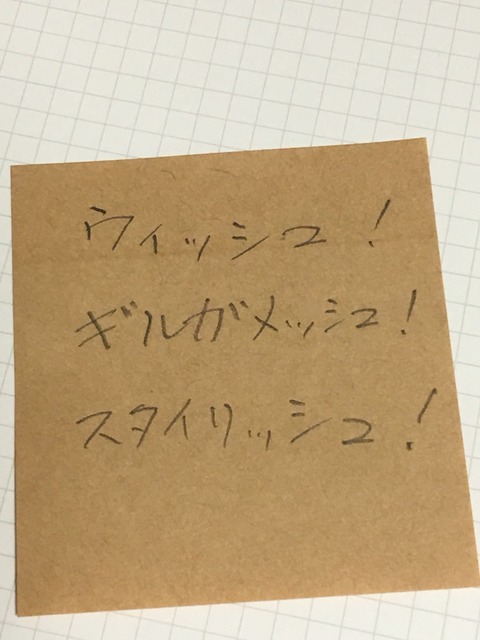 ウィッシュ！
ギルガメッシュ！
スタイリッシュ！